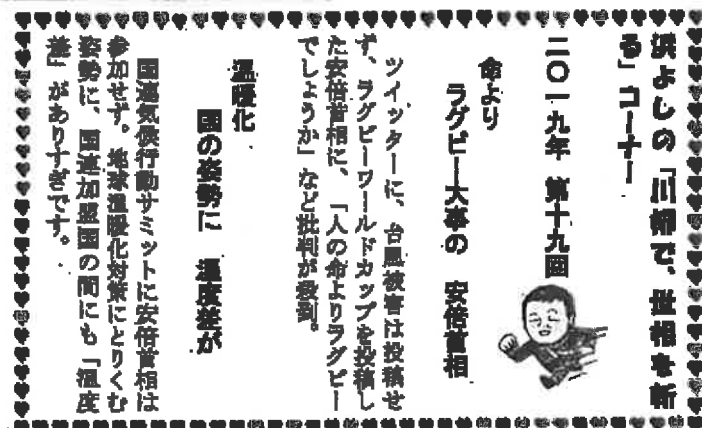 浜よしの「川柳で、世相を斬
る」コーナー
二〇一九年 第十九回
命より
ラグビー大事の 安倍首相
ツイッターに、台風被害は投稿せ
ず、ラグビーワールドカップを投稿し
た安倍首相に、「人の命よりラグビー
でしょうか」など批判が殺到。
温暖化
国の姿勢に 温度差が
国連気候行動サミットに安倍首相は
参加せず。地球温暖化対策にとりくむ
姿勢に、国連加盟国の間にも「温度
差」がありすぎです。